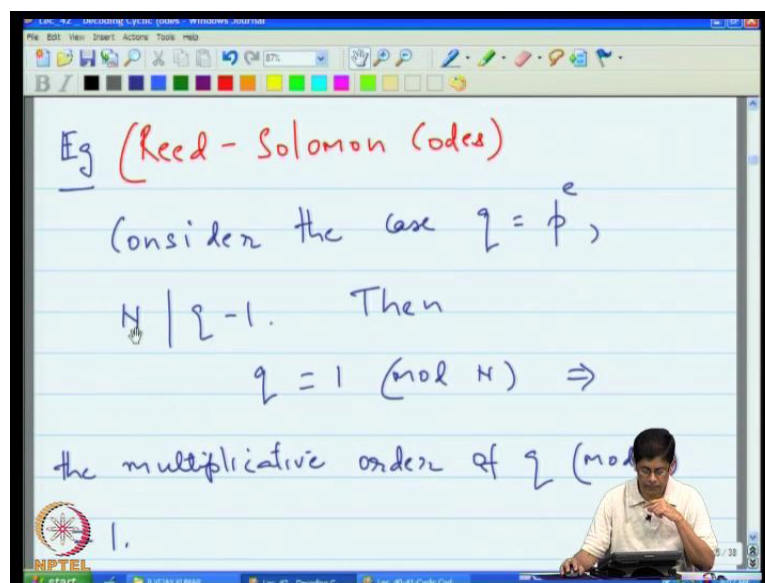 Lec_42 _ Decoding Cyclic Codes - Windows Journal
File Edit View Insert Actions Tools Help
87%
B I
Eg (Reed - Solomon Codes)
Consider the case q = p^e,
N | q - 1. Then
q = 1 (mod N) ⇒
the multiplicative order of q (mod
= 1.
/ 38
NPTEL
start